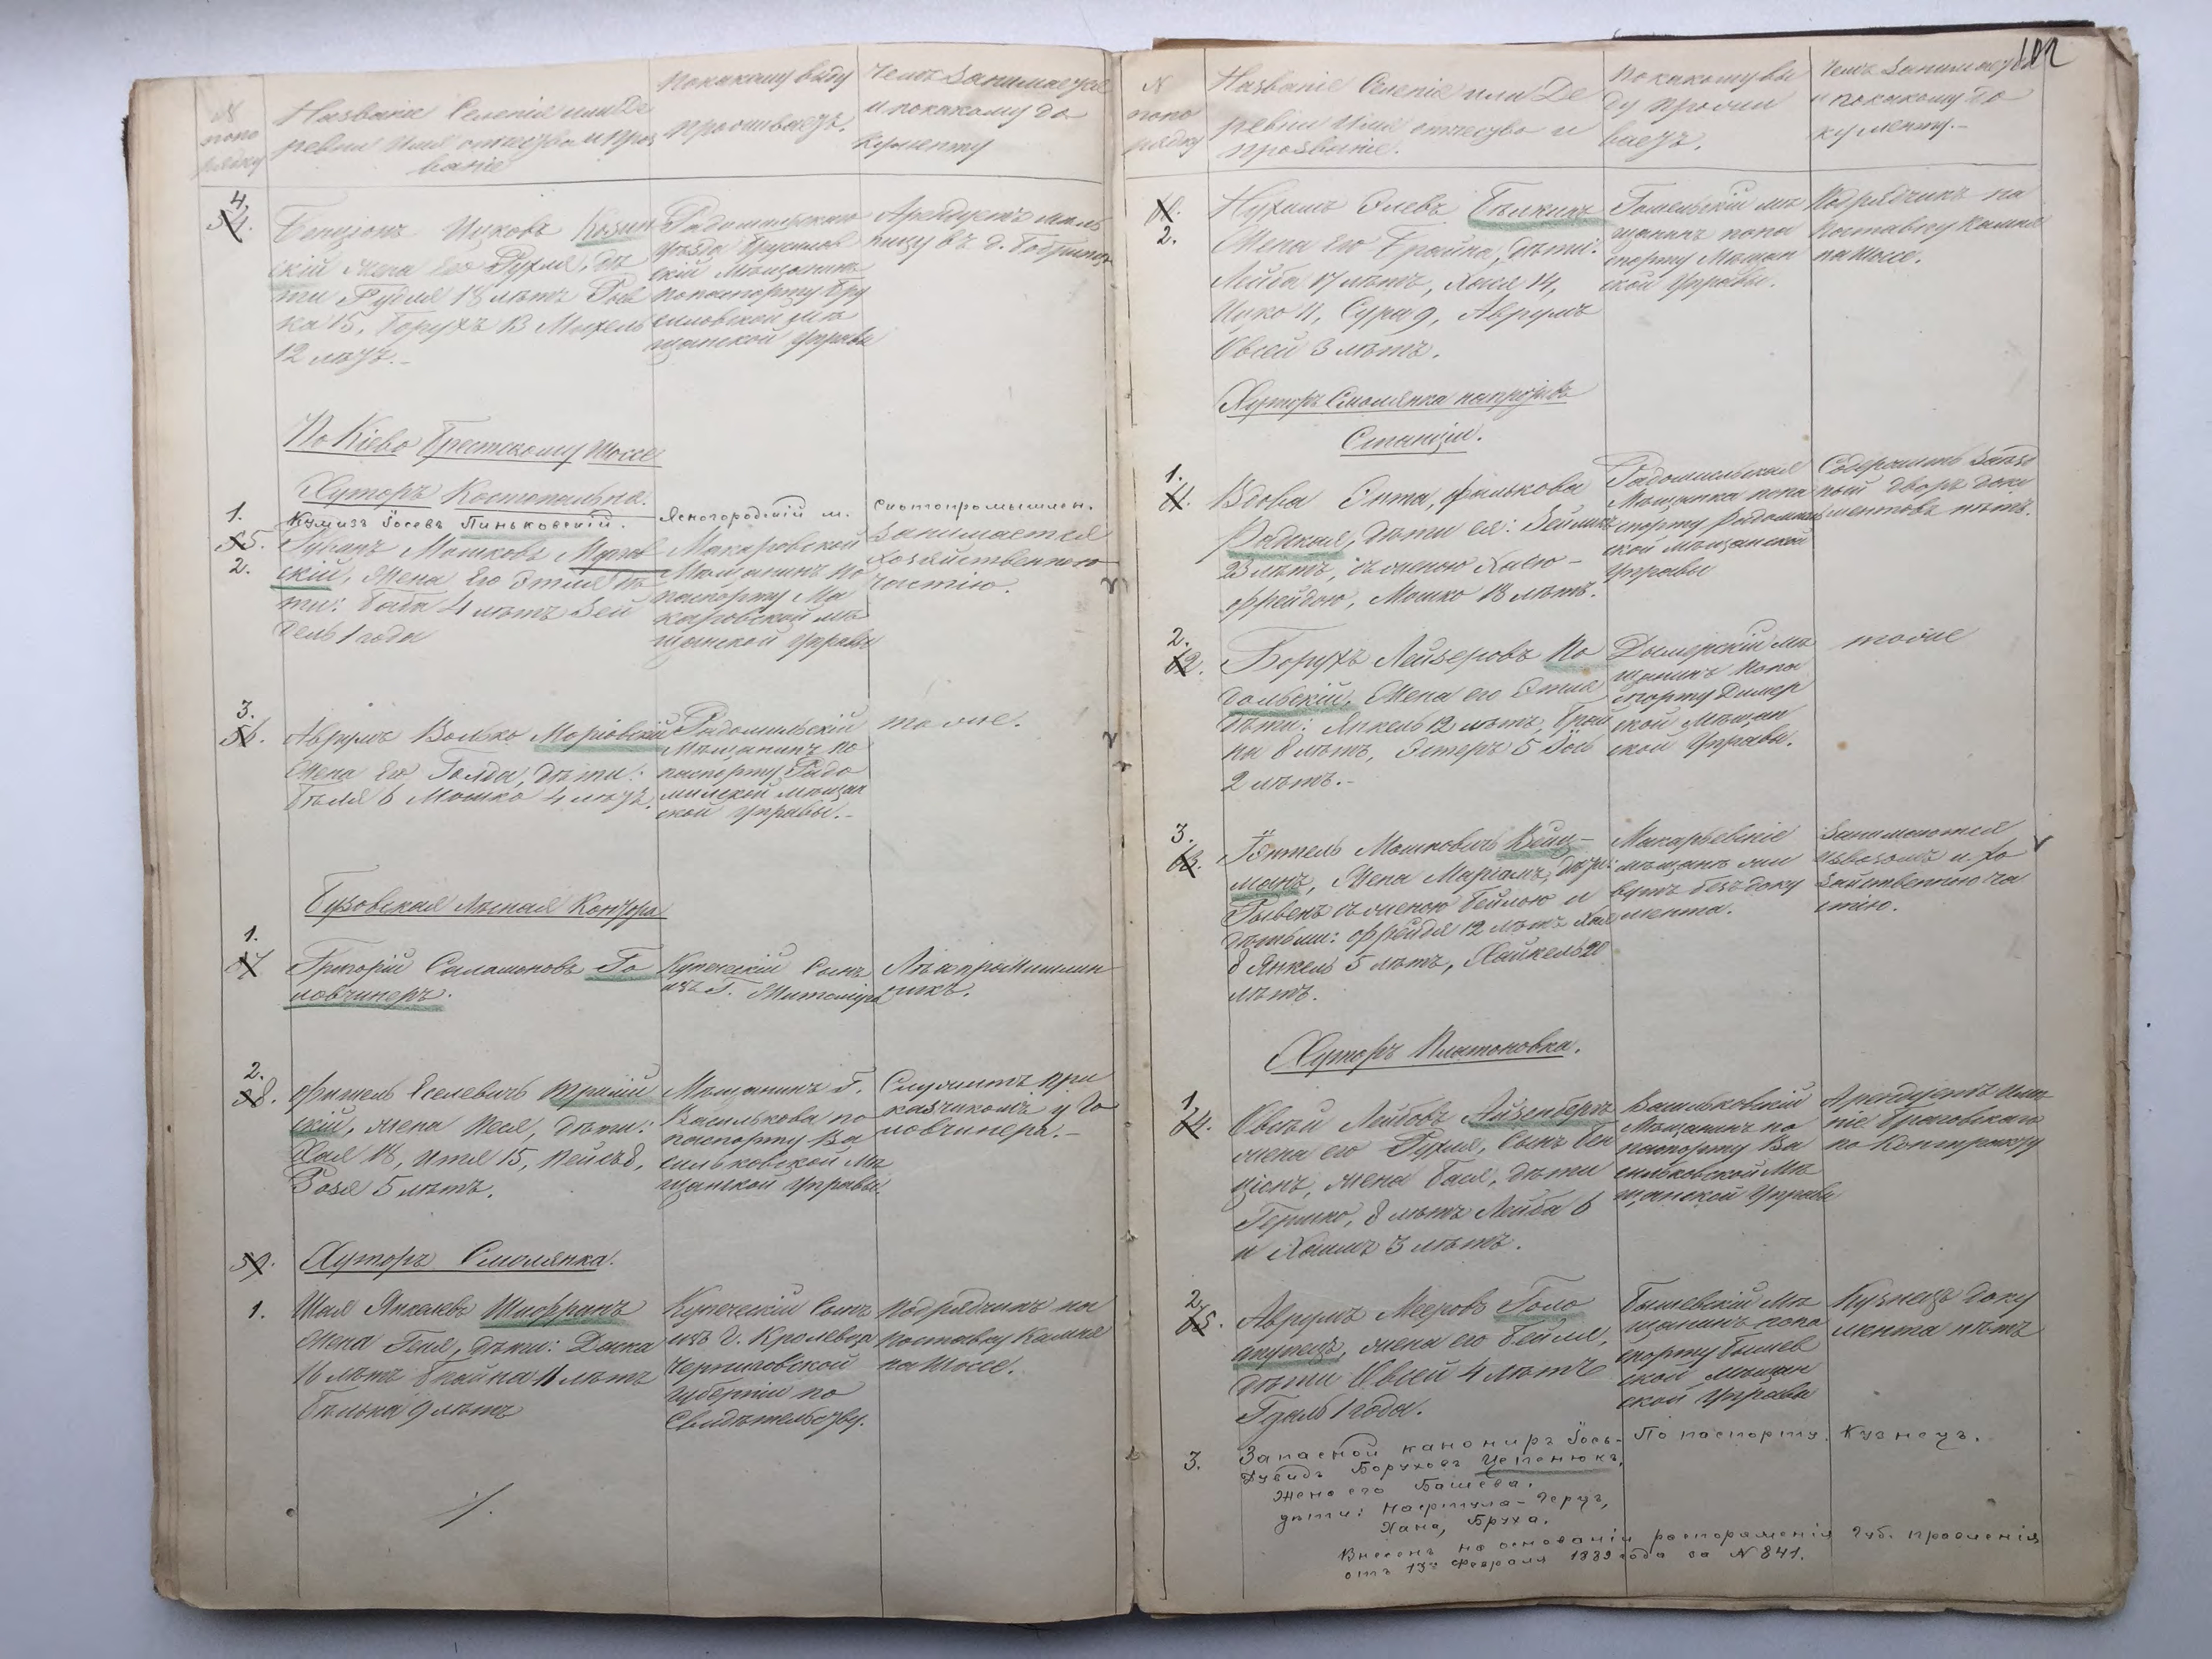 № попо рядку
Названіе Селенія или Де
ревни Имя отчество и проз
ваніе
По какому виду
проживаетъ.
Чемъ Занимается
и по какому до
кументу
4.
54.
Бенціонъ Ицковъ Козин
скій жена Его Рухля, дѣ
ти Рудля 18 лѣтъ Рив
ка 15, Борухъ 13 Мотель
12 лѣтъ.-
Радомысльскаго
уѣзда Брусилов
скій Мѣщанинъ
по паспорту Бру
силовской мѣ
щанской Управы
Арендуетъ мель
ницу въ д.
По Кіево Брестскому Шоссе
Хуторъ Костопальна.
1.
Іосевъ Пиньковскій.
Ясногородскій м.
Скотопромышлен.
55.
2.
Мошковъ
скій, Жена Его Этля дѣ
ти: Баба 4 лѣтъ Зей
дель 1 года
Макаровской
Мѣщанинъ по
паспорту Ма
каровской мѣ
щанской Управы
Занимается
хозяйственною
частію.
3.
56.
Аврумъ Волько Моровскій
Жена Его Голда, дѣти:
Бѣля 6 Мошко 4 лѣтъ.
Радомысльскій
Мѣщанинъ по
паспорту Радо
мысльской мѣщан
ской Управы.-
тоже.
Бузовская Лѣсная Контора
1.
57
Григорій Саламоновъ Го
ловчинеръ.
Купеческій Сынъ
изъ Г. Житоміра
Лѣсопромышлен
никъ.
2.
58.
Фишель Еселевичъ
скій, жена Неся, дѣти:
Хая 18, Итля 15, Пейсъ 8,
Розя 5 лѣтъ.
Мѣщанинъ Г.
Василькова по
паспорту Ва
сильковской Мѣ
щанской Управы.
Служитъ при
казчикомъ у Го
ловчинера.-
59.
Хуторъ Смолянка.
1.
Шая Янкелевъ Шифринъ
Жена Геня, дѣти: Доска
16 лѣтъ Брайна 11 лѣтъ
Бѣлька 9 лѣтъ
Купеческій Сынъ
изъ г. Кролевца
Черниговской
губерніи по
Свидѣтельству.
Подрядчикъ на
поставку Камня
на Шоссе.
./.
102
№ попо рядку
Названіе Селенія или Де
ревни Имя отчество и
прозваніе.
По какому ви
ду прожи
ваетъ.
Чемъ Занимается
и покакому до
кументу.-
2.
Нухимъ Элевъ Бѣлкинъ
Жена Его Брайна, дѣти:
Лейба 17 лѣтъ, Хася 14,
Ицко 11, Сура 9, Аврумъ
Овсей 3 лѣтъ.
Гомельскій мѣ
щанинъ попа
спорту Мѣщан
ской Управы.
Подрядчикъ на
поставку Камня
на Шоссе.
Хуторъ Смолянка напротивъ
Станціи.
1.
61.
Вдова Элта, Фалькова
Радская, дѣти ея: Зейликъ
23 лѣтъ, съ женою Хаею -
Фрейдою, Мошко 18 лѣтъ.
Радомысльская
Мѣщанка попа
спорту Радомысль
ской мѣщанской
Управы
Содержитъ Заѣз
ный дворъ доку
ментовъ нѣтъ.
2.
62.
Борухъ Лейзеровъ По
дольскій, Жена его Этля
дѣти: Янкель 12 лѣтъ, Брай
на 8 лѣтъ, Эстеръ 5 Іось
2 лѣтъ.-
Дымерскій мѣ
щанинъ попа
спорту Дымер
ской Мѣщан
ской Управы.
тоже
3.
63.
Мошковичъ Вейц-
манъ, Жена Маріамъ, дѣти:
съ женою Бейлою и
дѣтьми: Фрейдя 12 лѣтъ Хая
8 Янкель 5 лѣтъ, Хайкель 20
лѣтъ.
Макарьевскіе
мѣщане жи
вутъ безъ доку
мента.
Занимаются
извозомъ и хо
зяйственною ча
стію.
Хуторъ Платоновка.
1
64.
Овсѣй Лейбовъ Айзенбергъ
жена его Рухля, Сынъ Бен
ціонъ, жена Бася, дѣти
Гершко, 8 лѣтъ Лейба 6
и Хаимъ 3 лѣтъ.
Васильковскій
Мѣщанинъ по
паспорту Ва
сильковской Мѣ
щанской Управы
Арендуетъ имѣ
ніе
по Контракту
2.
65.
Аврумъ Мееровъ Голо
жена его Бейля,
дѣти Овсей 4 лѣтъ
Гдаль 1 года.
Бышевскій мѣ
щанинъ попа
спорту Бышев
ской мѣщан
ской Управы
Кузнецъ доку
мента нѣтъ
3.
Запасной канониръ Іось-
Дувидъ Боруховъ Цепенюкъ,
Жена его Башева,
дѣти: Нафтула-Герцъ,
Хана, Бруха.
По паспорту.
Кузнецъ.
Внесенъ на основаніи распоряженія Губ. Правленія
отъ 13го Февраля 1889 года за № 841.